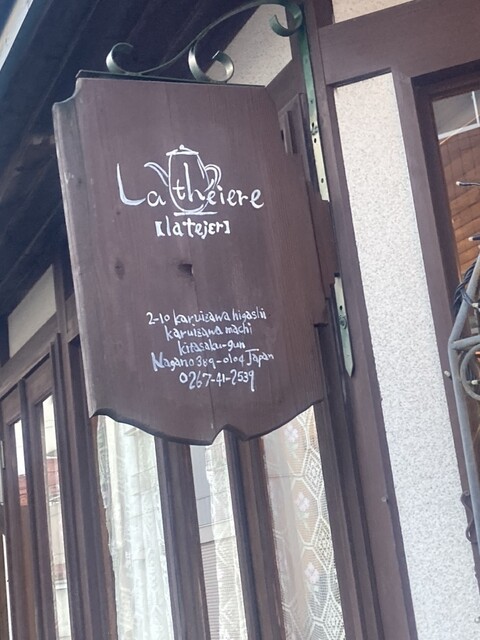 La théiere
[latejɛr]
2-10 karuizawa higashi
karuizawa machi
kitasaku-gun
Nagano 389-0104 Japan
0267-41-2539